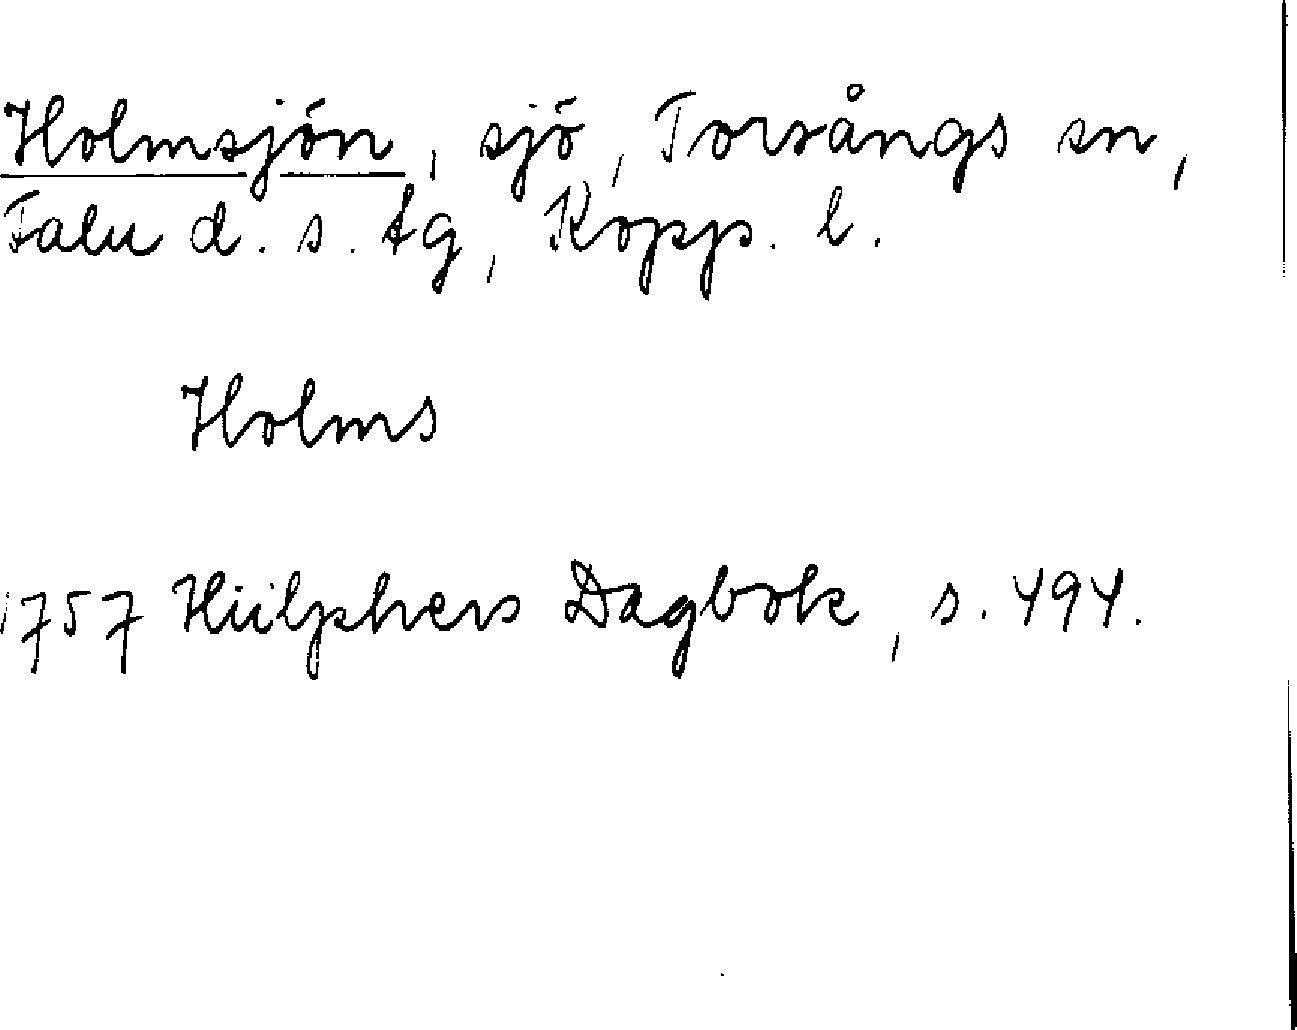 Holmsjön, sjö, Torsångs sn,
Falu d. s. tg, Kopp. l.
Holms
1757 Hülphers Dagbok, s. 494.